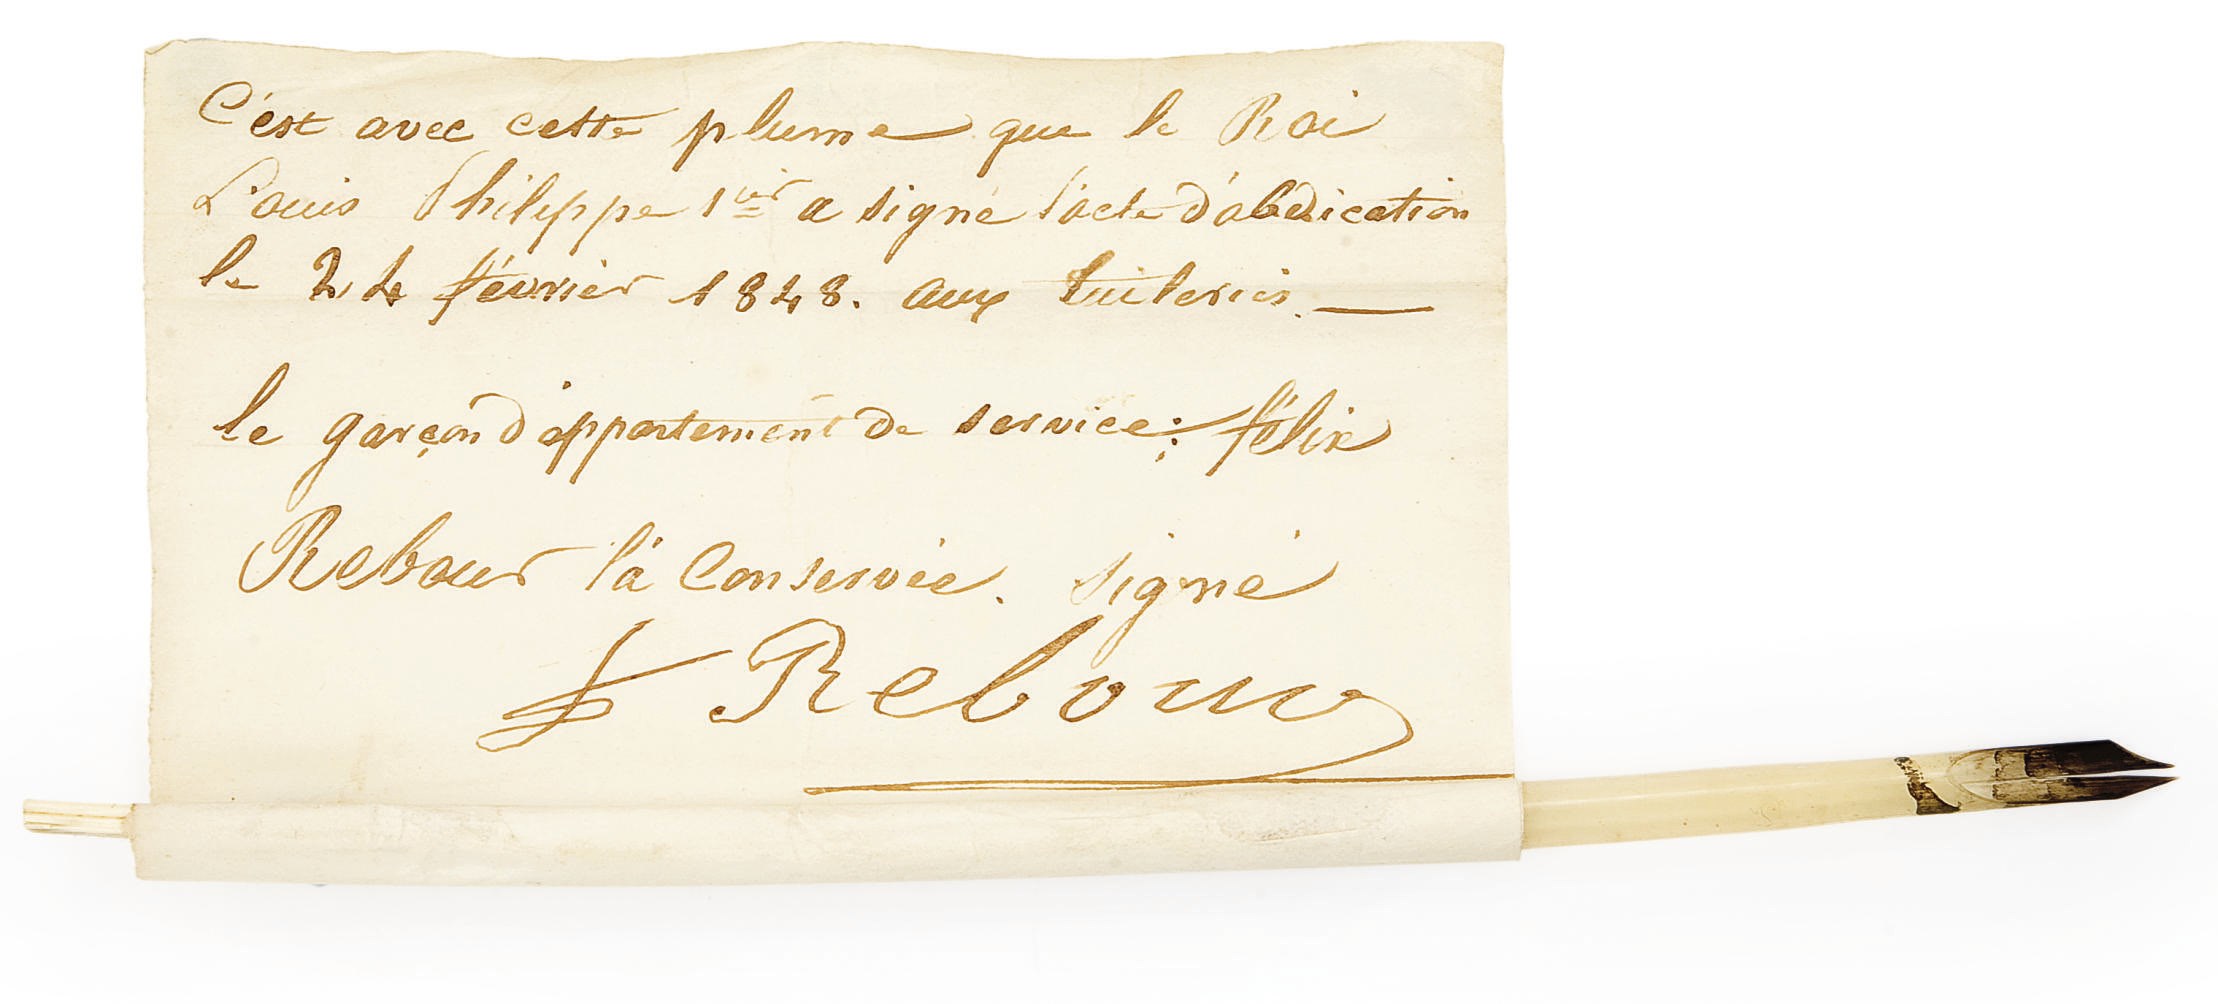 C'est avec cette plume que le Roi
Louis Philippe 1ier a signé l'acte d'abdication
le 24 février 1848. aux tuileries. —
le garçon d'appartement de service: félix
Rebour l'á Conservée. signé
f Rebour